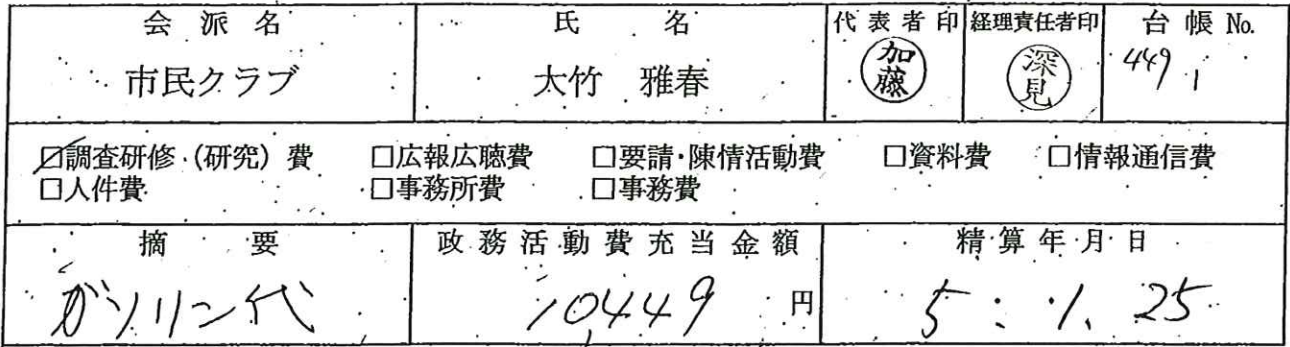 会派名 氏名 代表者印 経理責任者印 台帳No.
市民クラブ 大竹 雅春 加藤 深見 449 1
☑調査研修(研究)費 □広報広聴費 □要請・陳情活動費 □資料費 □情報通信費
□人件費 □事務所費 □事務費
摘要 政務活動費充当金額 精算年月日
ガソリン代 10449 円 5 . 1. 25